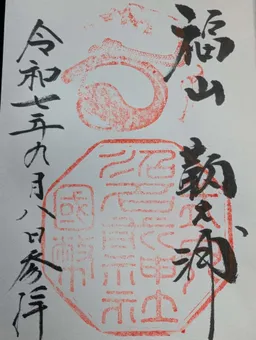 福山
鞆乃浦
沼名前神社
國幣
令和七年九月八日参拝